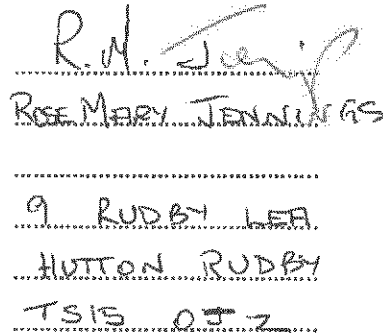 R. M. Jennings
ROSEMARY JENNINGS
9 RUDBY LEA
HUTTON RUDBY
TS15 0JZ